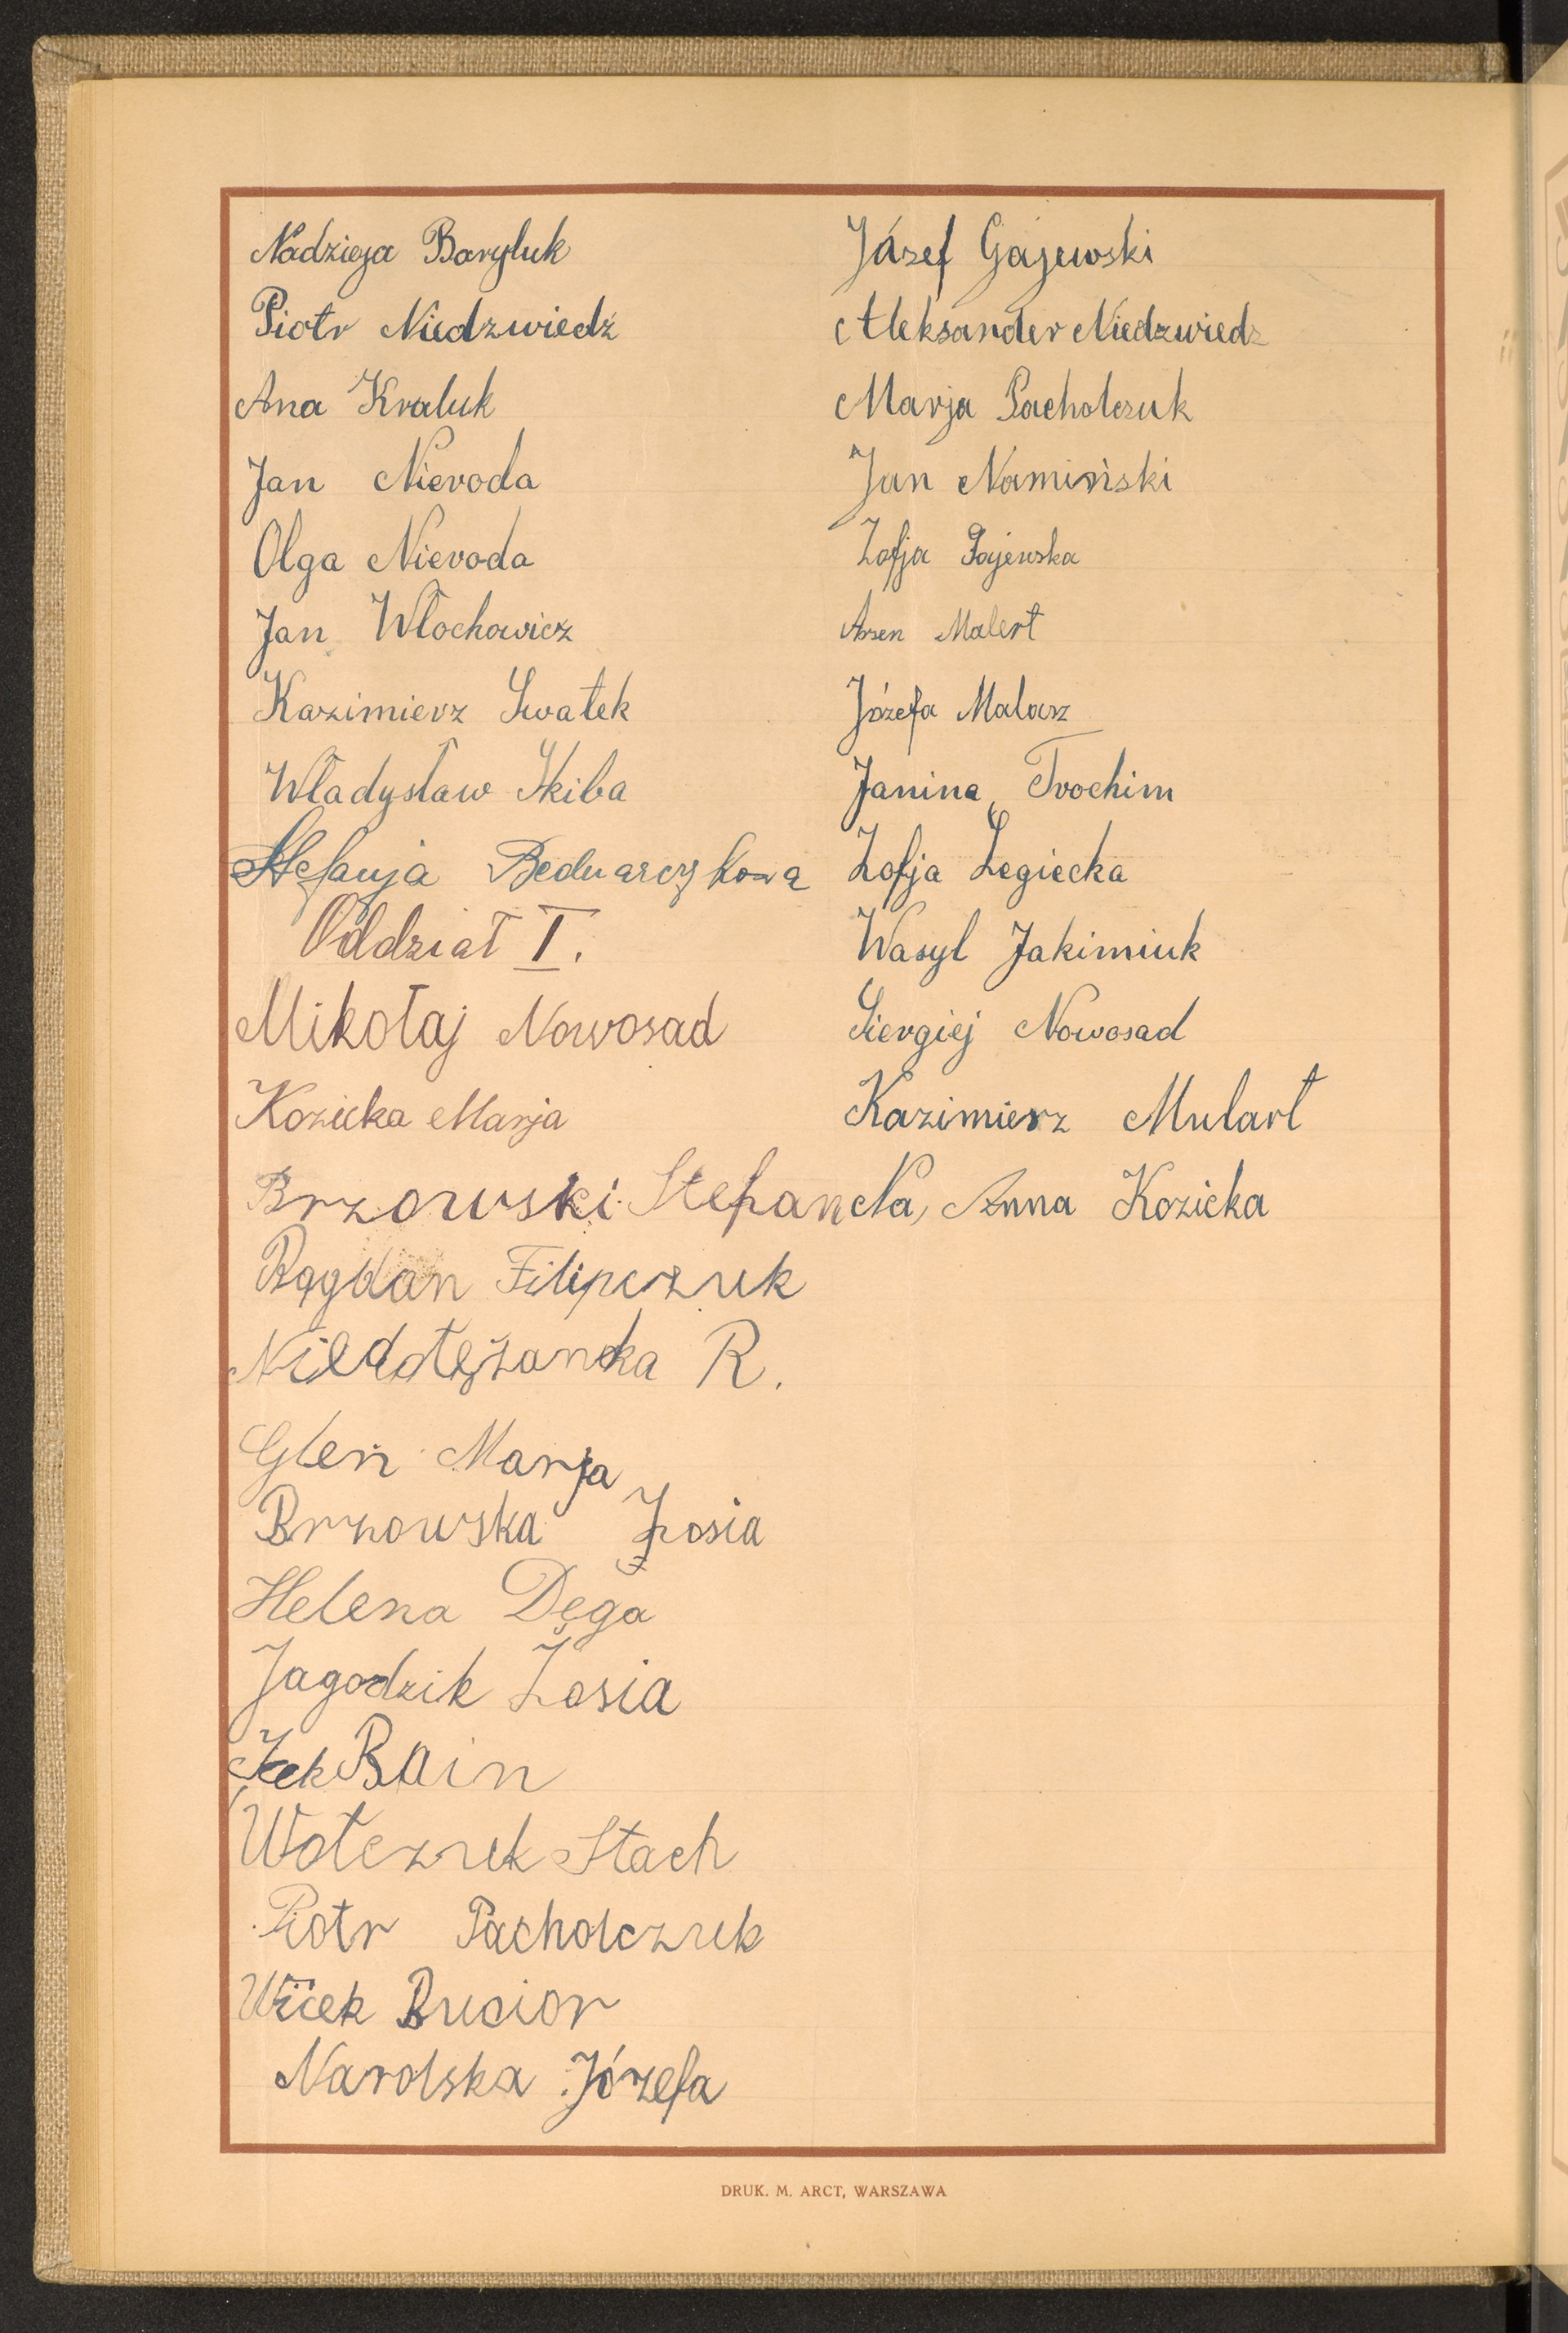 Nadzieja Baryluk
Piotr Niedzwiedź
Ana Kraluk
Jan Nievoda
Olga Nievoda
Jan Włochowicz
Kazimierz Swatek
Władysław Skiba
Stefanja Bednarczykowa
Oddział I.
Mikołaj Nowosad
Kozicka Marja
Brzowski Stefan
Bogdan Filipczuk
Niedotężanka R.
Gleń Marja
Brzowska Zosia
Helena Dęga
Jagodzik Zosia
Icek Bain
Wołczuk Stach
Piotr Pacholczuk
Wicek Bucior
Narolska Józefa
Józef Gajewski
Aleksander Niedzwiedz
Marja Pacholczuk
Jan Namiński
Zofja Gajewska
Arsen Malert
Józefa Malarz
Janina Trochim
Zofja Legiecka
Wasyl Jakimiuk
Siergiej Nowosad
Kazimierz Mulart
Na, Anna Kozicka
DRUK. M. ARCT, WARSZAWA